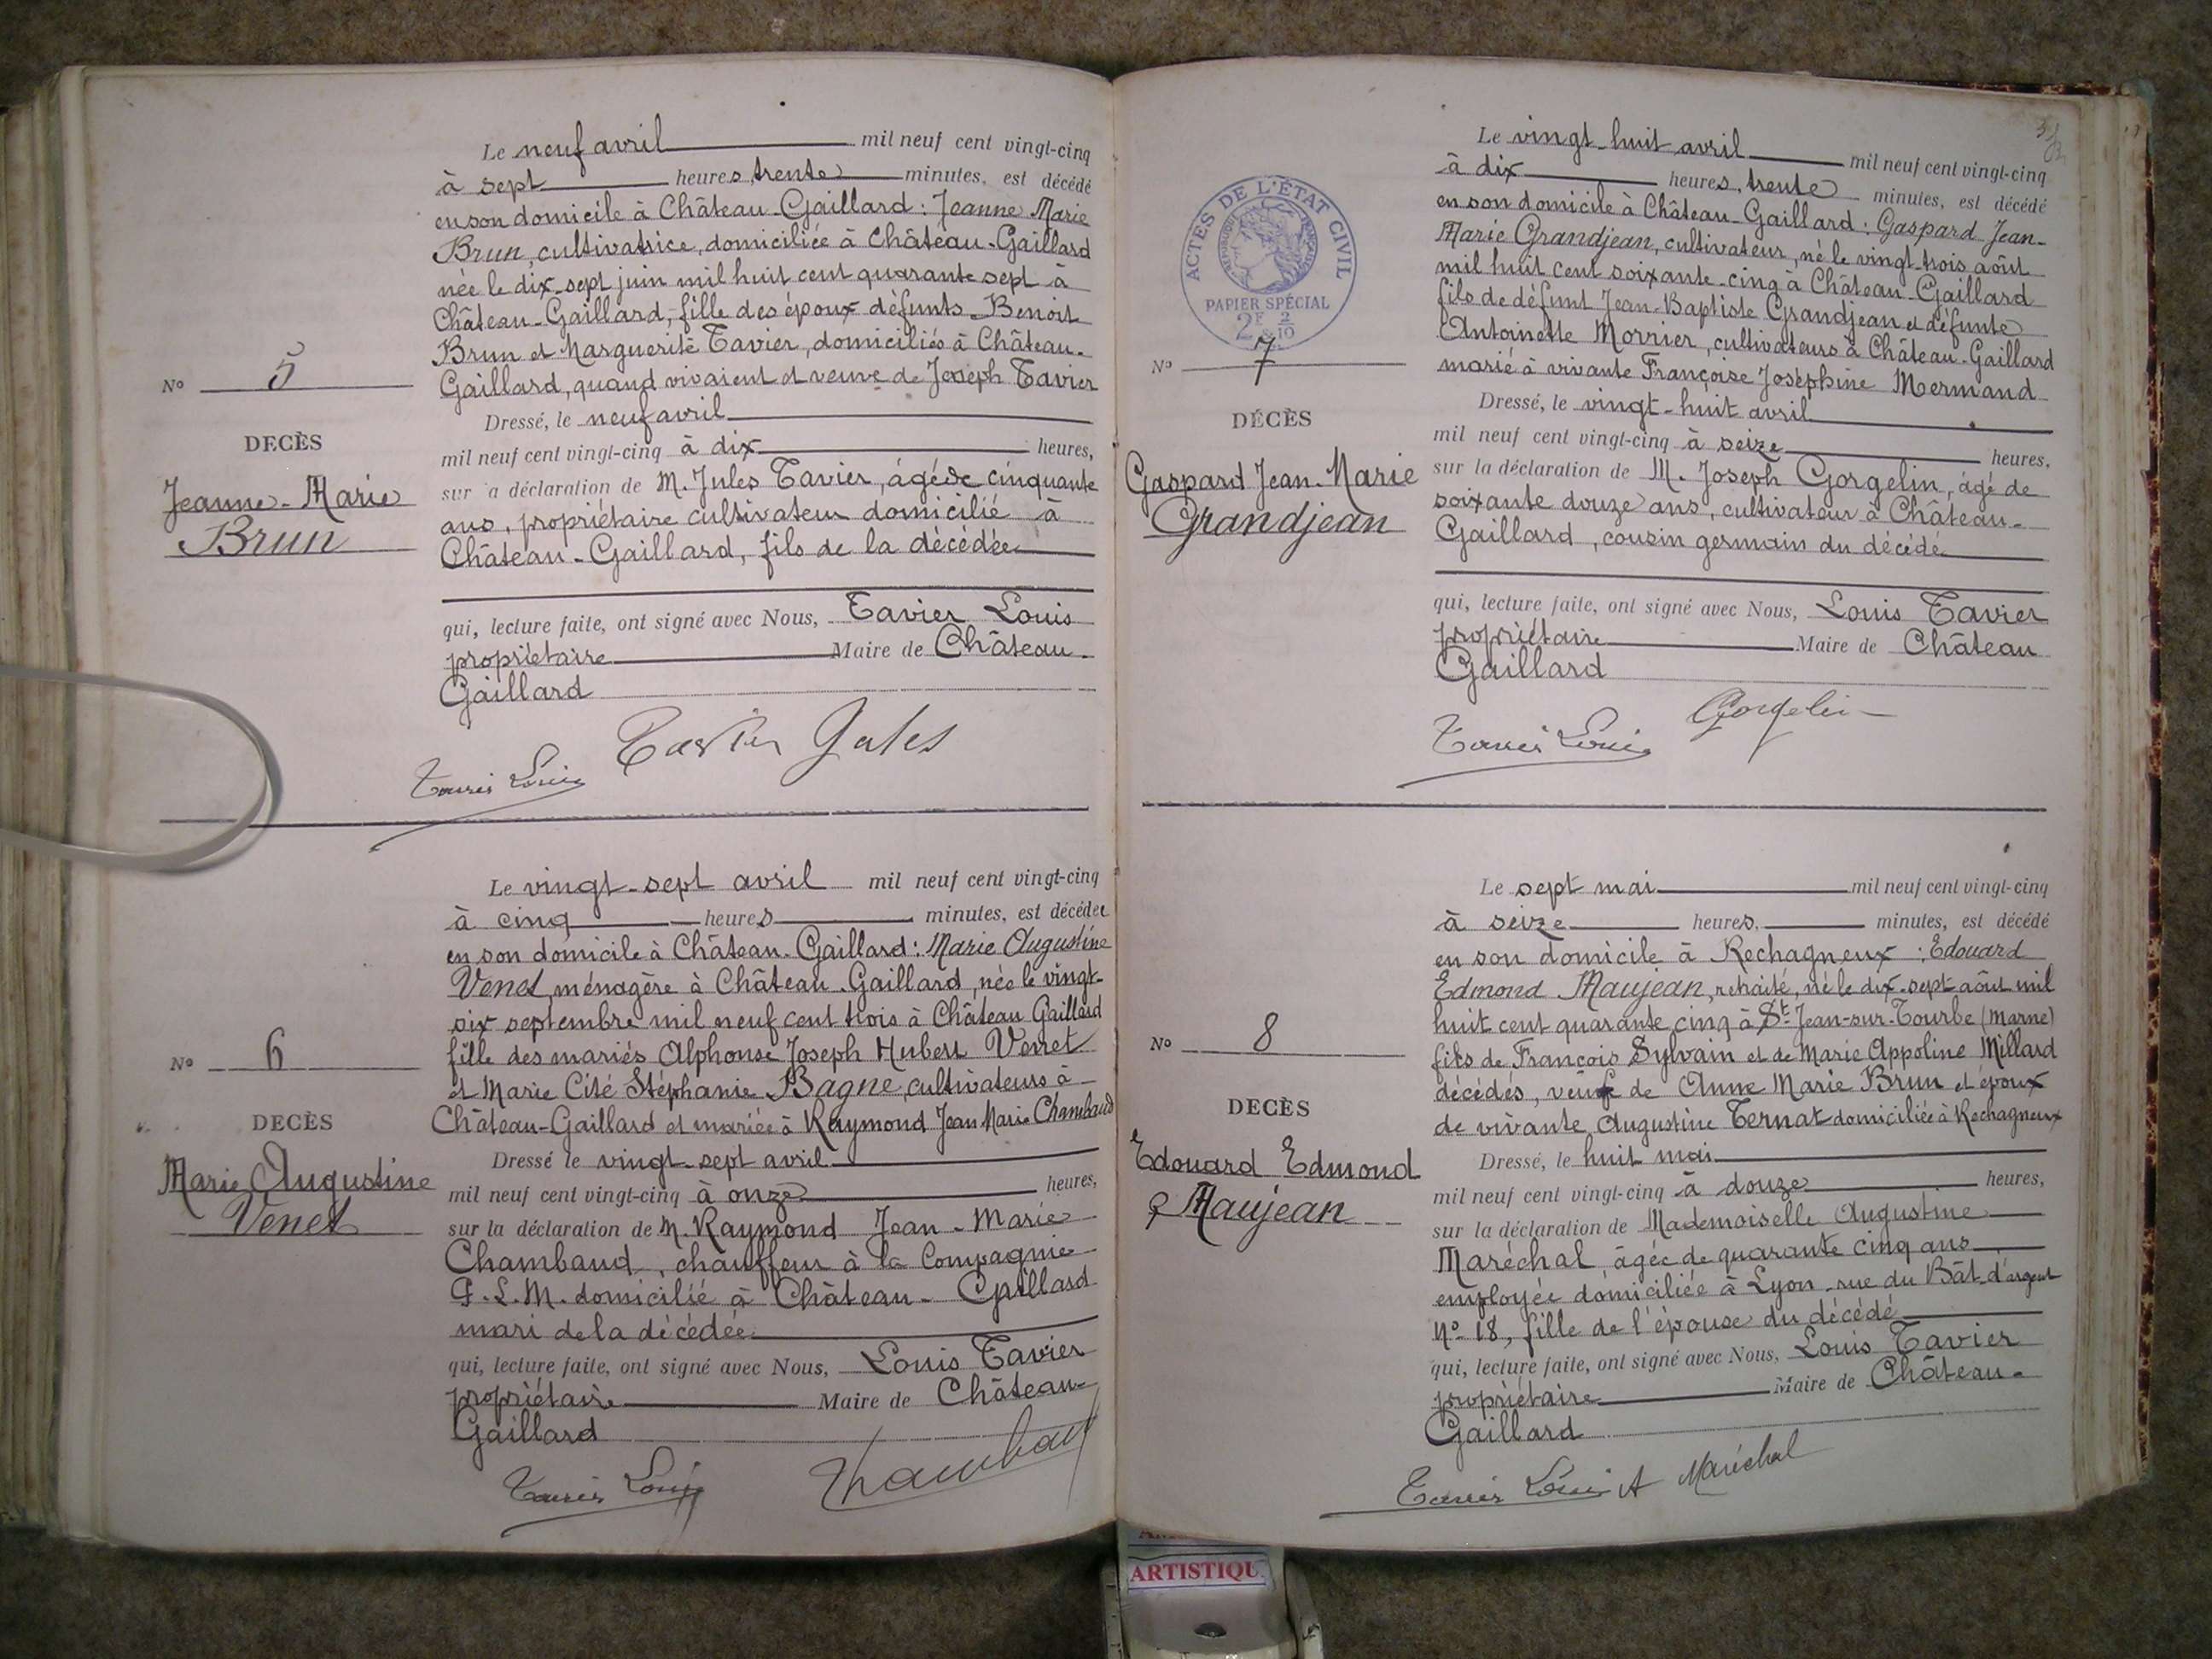 Le neuf avril mil neuf cent vingt-cinq
à sept heures, trente minutes, est décédé
en son domicile à Château-Gaillard : Jeanne Marie
Brun, cultivatrice, domiciliée à Château-Gaillard
née le dix-sept juin mil huit cent quarante sept à
Château-Gaillard, fille des époux défunts Benoit
Brun et Marguerite Tavier, domiciliés à Château-
Gaillard, quand vivaient et veuve de Joseph Tavier
Dressé, le neuf avril
mil neuf cent vingt-cinq à dix heures,
sur a déclaration de M. Jules Tavier, âgé de cinquante
ans, propriétaire cultivateur domicilié à
Château-Gaillard, fils de la décédée
qui, lecture faite, ont signé avec Nous, Tavier Louis
propriétaire Maire de Château-
Gaillard
Tavier Jules
Tavier Louis
No 5
DECÈS
Jeanne-Marie
Brun
Le vingt-sept avril mil neuf cent vingt-cinq
à cinq heures minutes, est décédée
en son domicile à Château-Gaillard : Marie Augustine
Venet, ménagère à Château-Gaillard, née le vingt-
six septembre mil neuf cent trois à Château Gaillard
fille des mariés Alphonse Joseph Hubert Venet
et Marie Cité Stéphanie Bagne, cultivateurs à
Château-Gaillard et mariée à Raymond Jean Marie Chambaud
Dressé le vingt-sept avril
mil neuf cent vingt-cinq à onze heures,
sur la déclaration de M. Raymond Jean-Marie
Chambaud, chauffeur à la Compagnie
P.L.M. domicilié à Château-Gaillard
mari de la décédée
qui, lecture faite, ont signé avec Nous, Louis Tavier
propriétaire Maire de Château-
Gaillard
Tavier Louis Chambaud
No 6
DECÈS
Marie Augustine
Venet
Le vingt-huit avril mil neuf cent vingt-cinq
à dix heures, trente minutes, est décédé
en son domicile à Château-Gaillard : Gaspard Jean-
Marie Grandjean, cultivateur, né le vingt-trois août
mil huit cent soixante-cinq à Château-Gaillard
fils de défunt Jean-Baptiste Grandjean et défunte
Antoinette Morrier, cultivateurs à Château-Gaillard
marié à vivante Françoise Joséphine Mermand
Dressé, le vingt-huit avril
mil neuf cent vingt-cinq à seize heures,
sur la déclaration de M. Joseph Gorgelin, âgé de
soixante douze ans, cultivateur à Château-
Gaillard, cousin germain du décédé
qui, lecture faite, ont signé avec Nous, Louis Tavier
propriétaire Maire de Château
Gaillard
Tavier Louis Gorgelin
ACTES DE L'ÉTAT CIVIL
RÉPUBLIQUE FRANÇAISE
PAPIER SPÉCIAL
2F & 2/10
No 7
DÉCÈS
Gaspard Jean-Marie
Grandjean
Le sept mai mil neuf cent vingt-cinq
à seize heures, minutes, est décédé
en son domicile à Rechagneux : Edouard
Edmond Maujean, retraité, né le dix-sept août mil
huit cent quarante cinq à St-Jean-sur-Tourbe (Marne)
fils de François Sylvain et de Marie Appoline Millard
décédés, veuf de Anne Marie Brun et époux
de vivante Augustine Ternat domiciliée à Rechagneux
Dressé, le huit mai
mil neuf cent vingt-cinq à douze heures,
sur la déclaration de Mademoiselle Augustine
Maréchal, âgée de quarante cinq ans
employée domiciliée à Lyon-rue du Bât-d'argent
No 18, fille de l'épouse du décédé
qui, lecture faite, ont signé avec Nous, Louis Tavier
propriétaire Maire de Château-
Gaillard
Tavier Louis A Maréchal
No 8
DECÈS
Edouard Edmond
Maujean
ARTISTIQU